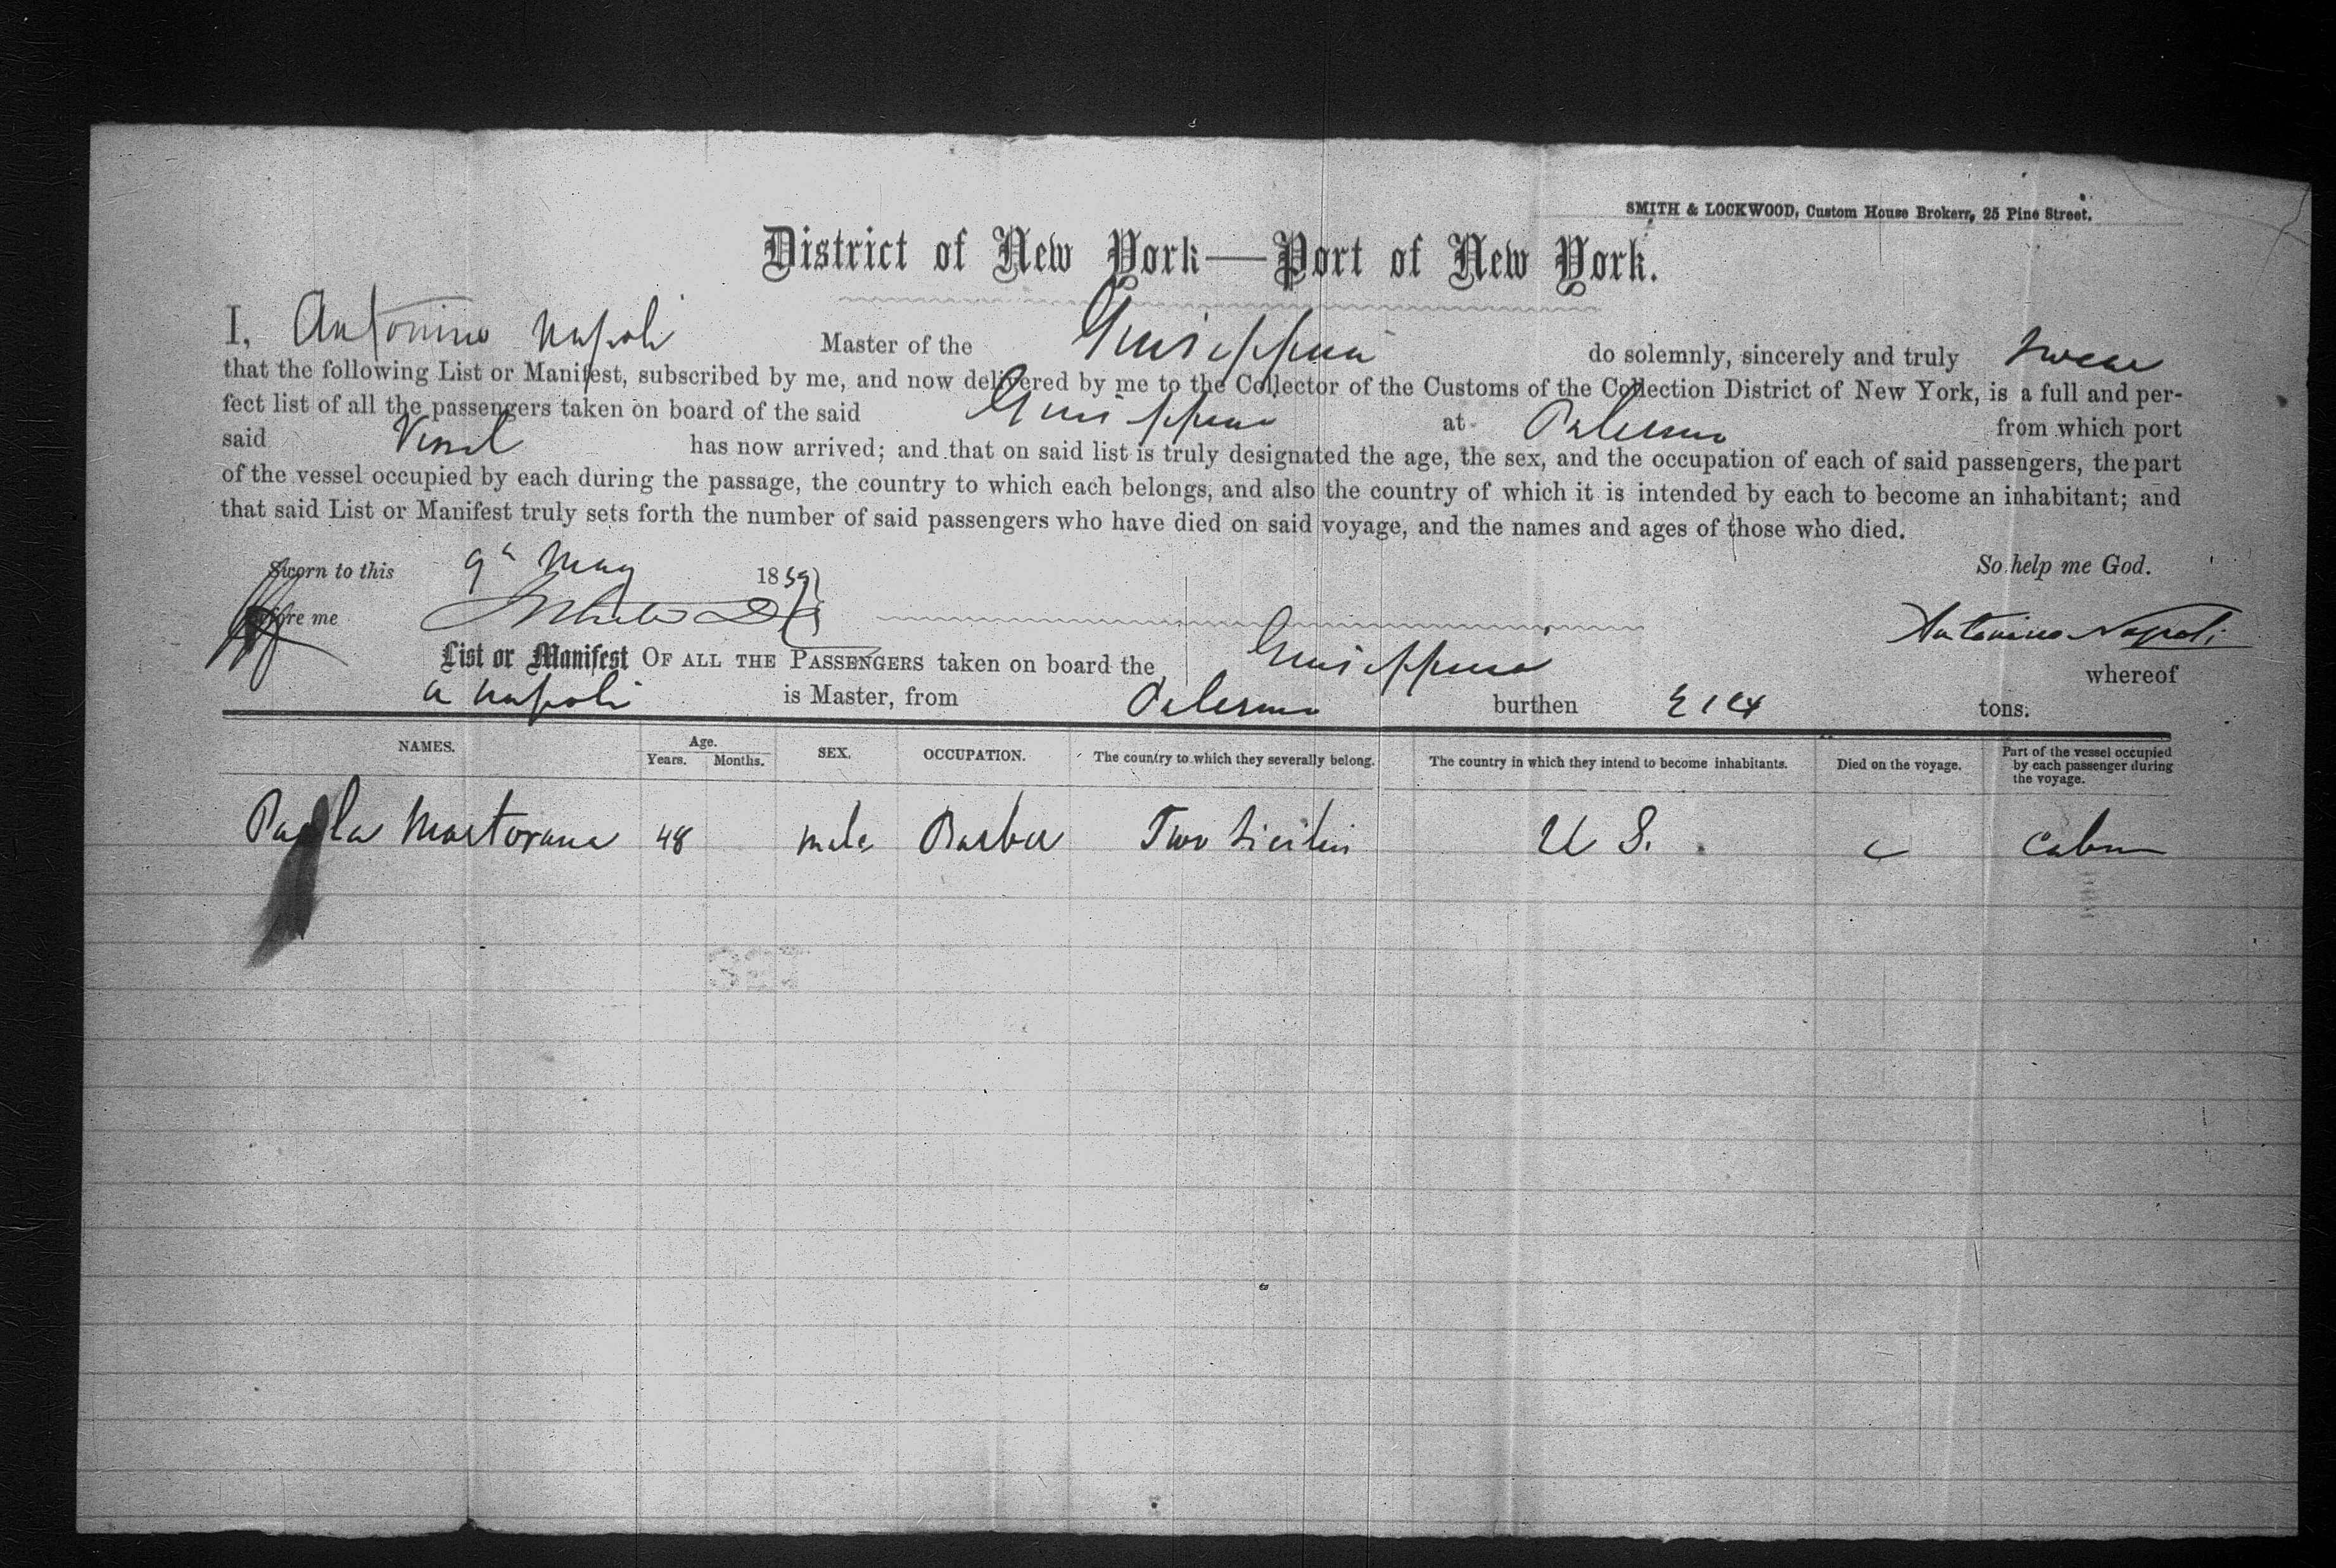 SMITH & LOCKWOOD, Custom House Brokers, 25 Pine Street.
District of New York—Port of New York.
I, Antonino Napoli Master of the Guiseppina do solemnly, sincerely and truly swear
that the following List or Manifest, subscribed by me, and now delivered by me to the Collector of the Customs of the Collection District of New York, is a full and per-
fect list of all the passengers taken on board of the said Guiseppina at Palermo from which port
said Vessel has now arrived; and that on said list is truly designated the age, the sex, and the occupation of each of said passengers, the part
of the vessel occupied by each during the passage, the country to which each belongs, and also the country of which it is intended by each to become an inhabitant; and
that said List or Manifest truly sets forth the number of said passengers who have died on said voyage, and the names and ages of those who died.
Sworn to this 9th May 1859 So help me God.
before me Antonino Napoli
List or Manifest OF ALL THE PASSENGERS taken on board the Guiseppina whereof
A Napoli is Master, from Palermo burthen tons.
NAMES. Age. Years. Months. SEX. OCCUPATION. The country to which they severally belong. The country in which they intend to become inhabitants. Died on the voyage. Part of the vessel occupied by each passenger during the voyage.
Paola Martorana 48 male Barber Two Sicilies U S. Cabin
327